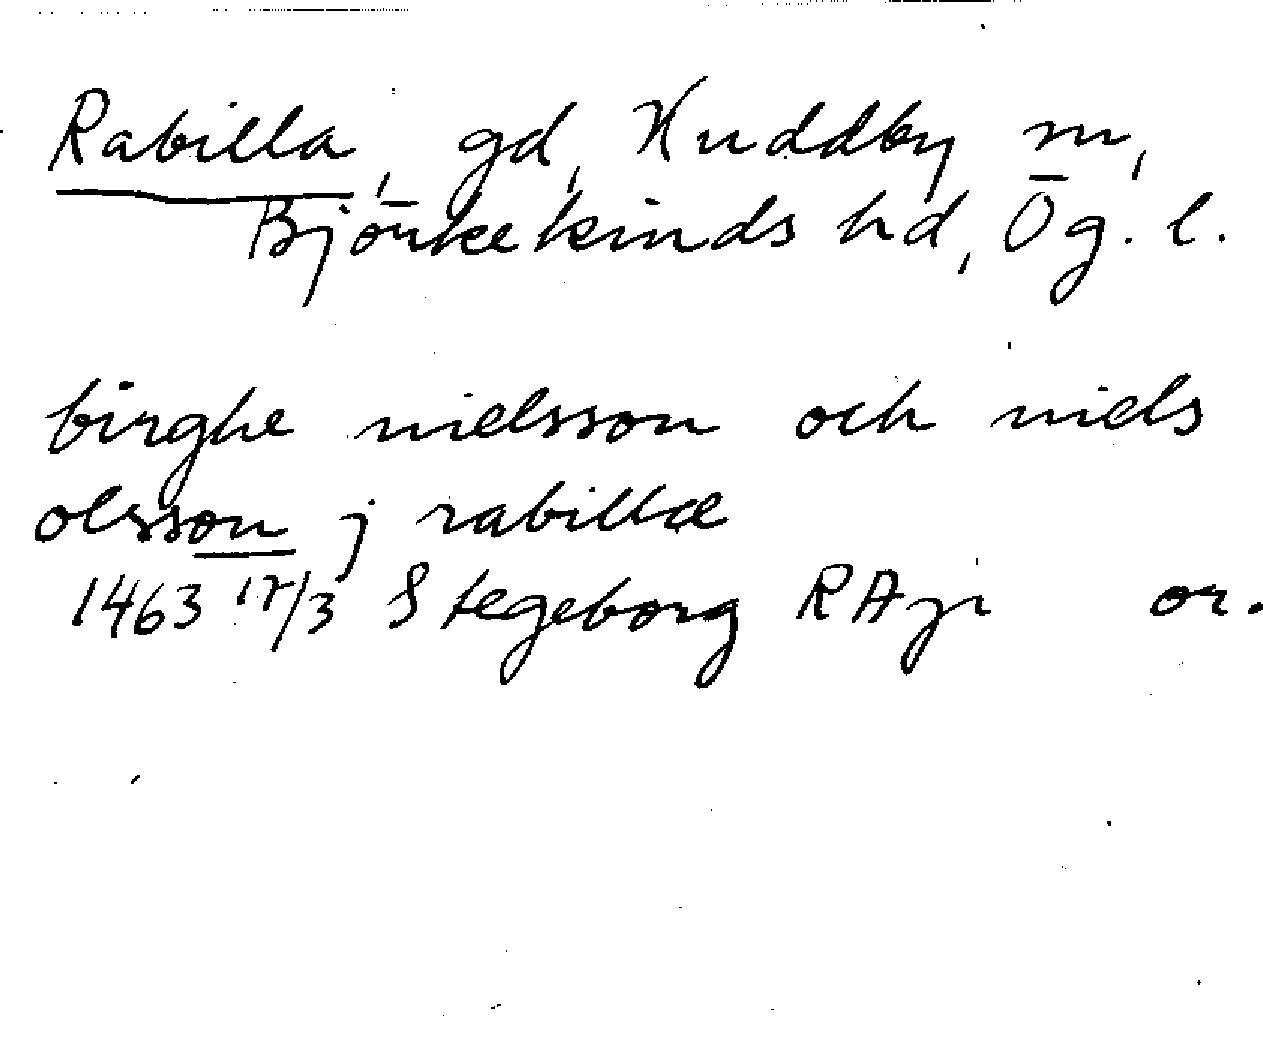 Rabilla, gd, Kuddby sn,
Björkekinds hd, Ög. l.
birghe nielsson och niels
olsson j rabillæ
1463 17/3 Stegeborg or.